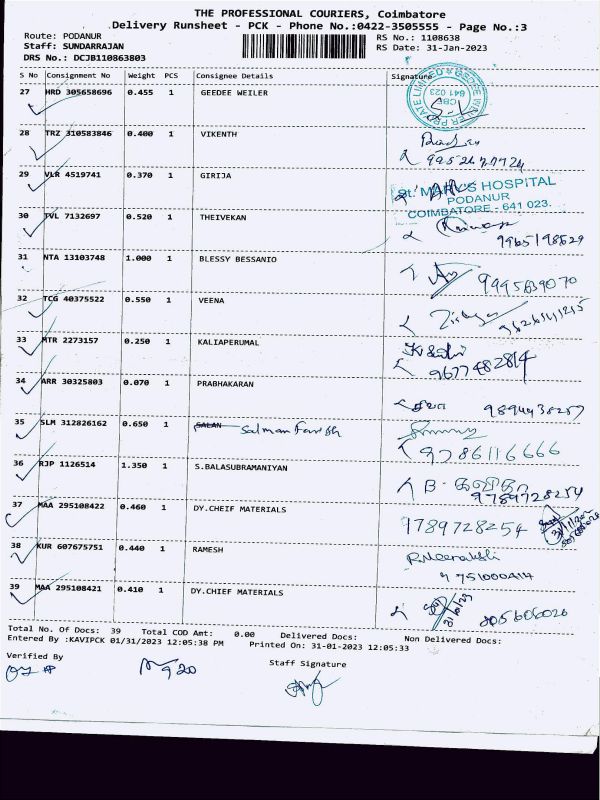 THE PROFESSIONAL COURIERS, Coimbatore
Delivery Runsheet - PCK - Phone No.:0422-3505555 - Page No.:3
Route: PODANUR
RS No.: 1108638
Staff: SUNDARRAJAN
RS Date: 31-Jan-2023
DRS No.: DCJB110863803
S No Consignment No Weight PCS Consignee Details Signature
27 HRD 305658696 0.455 1 GEEDEE WEILER
GEDEE WEILER PRIVATE LIMITED CBE 641 023
28 TRZ 310583846 0.400 1 VIKENTH
29 VLR 4519741 0.370 1 GIRIJA
St. MARK'S HOSPITAL
PODANUR
COIMBATORE - 641 023.
30 TVL 7132697 0.520 1 THEIVEKAN
9965198629
31 NTA 13103748 1.000 1 BLESSY BESSANIO
9995639070
32 TCG 40375522 0.550 1 VEENA
33 MTR 2273157 0.250 1 KALIAPERUMAL
9677482814
34 ARR 30325803 0.070 1 PRABHAKARAN
35 SLM 312826162 0.650 1 SALAN Salman
9786116666
36 RJP 1126514 1.350 1 S.BALASUBRAMANIYAN
9789728254
37 MAA 295108422 0.460 1 DY.CHEIF MATERIALS
9789728254
38 KUR 607675751 0.440 1 RAMESH
39 MAA 295108421 0.410 1 DY.CHIEF MATERIALS
Total No. Of Docs: 39 Total COD Amt: 0.00 Delivered Docs: Non Delivered Docs:
Entered By :KAVIPCK 01/31/2023 12:05:38 PM Printed On: 31-01-2023 12:05:33
Verified By
Staff Signature